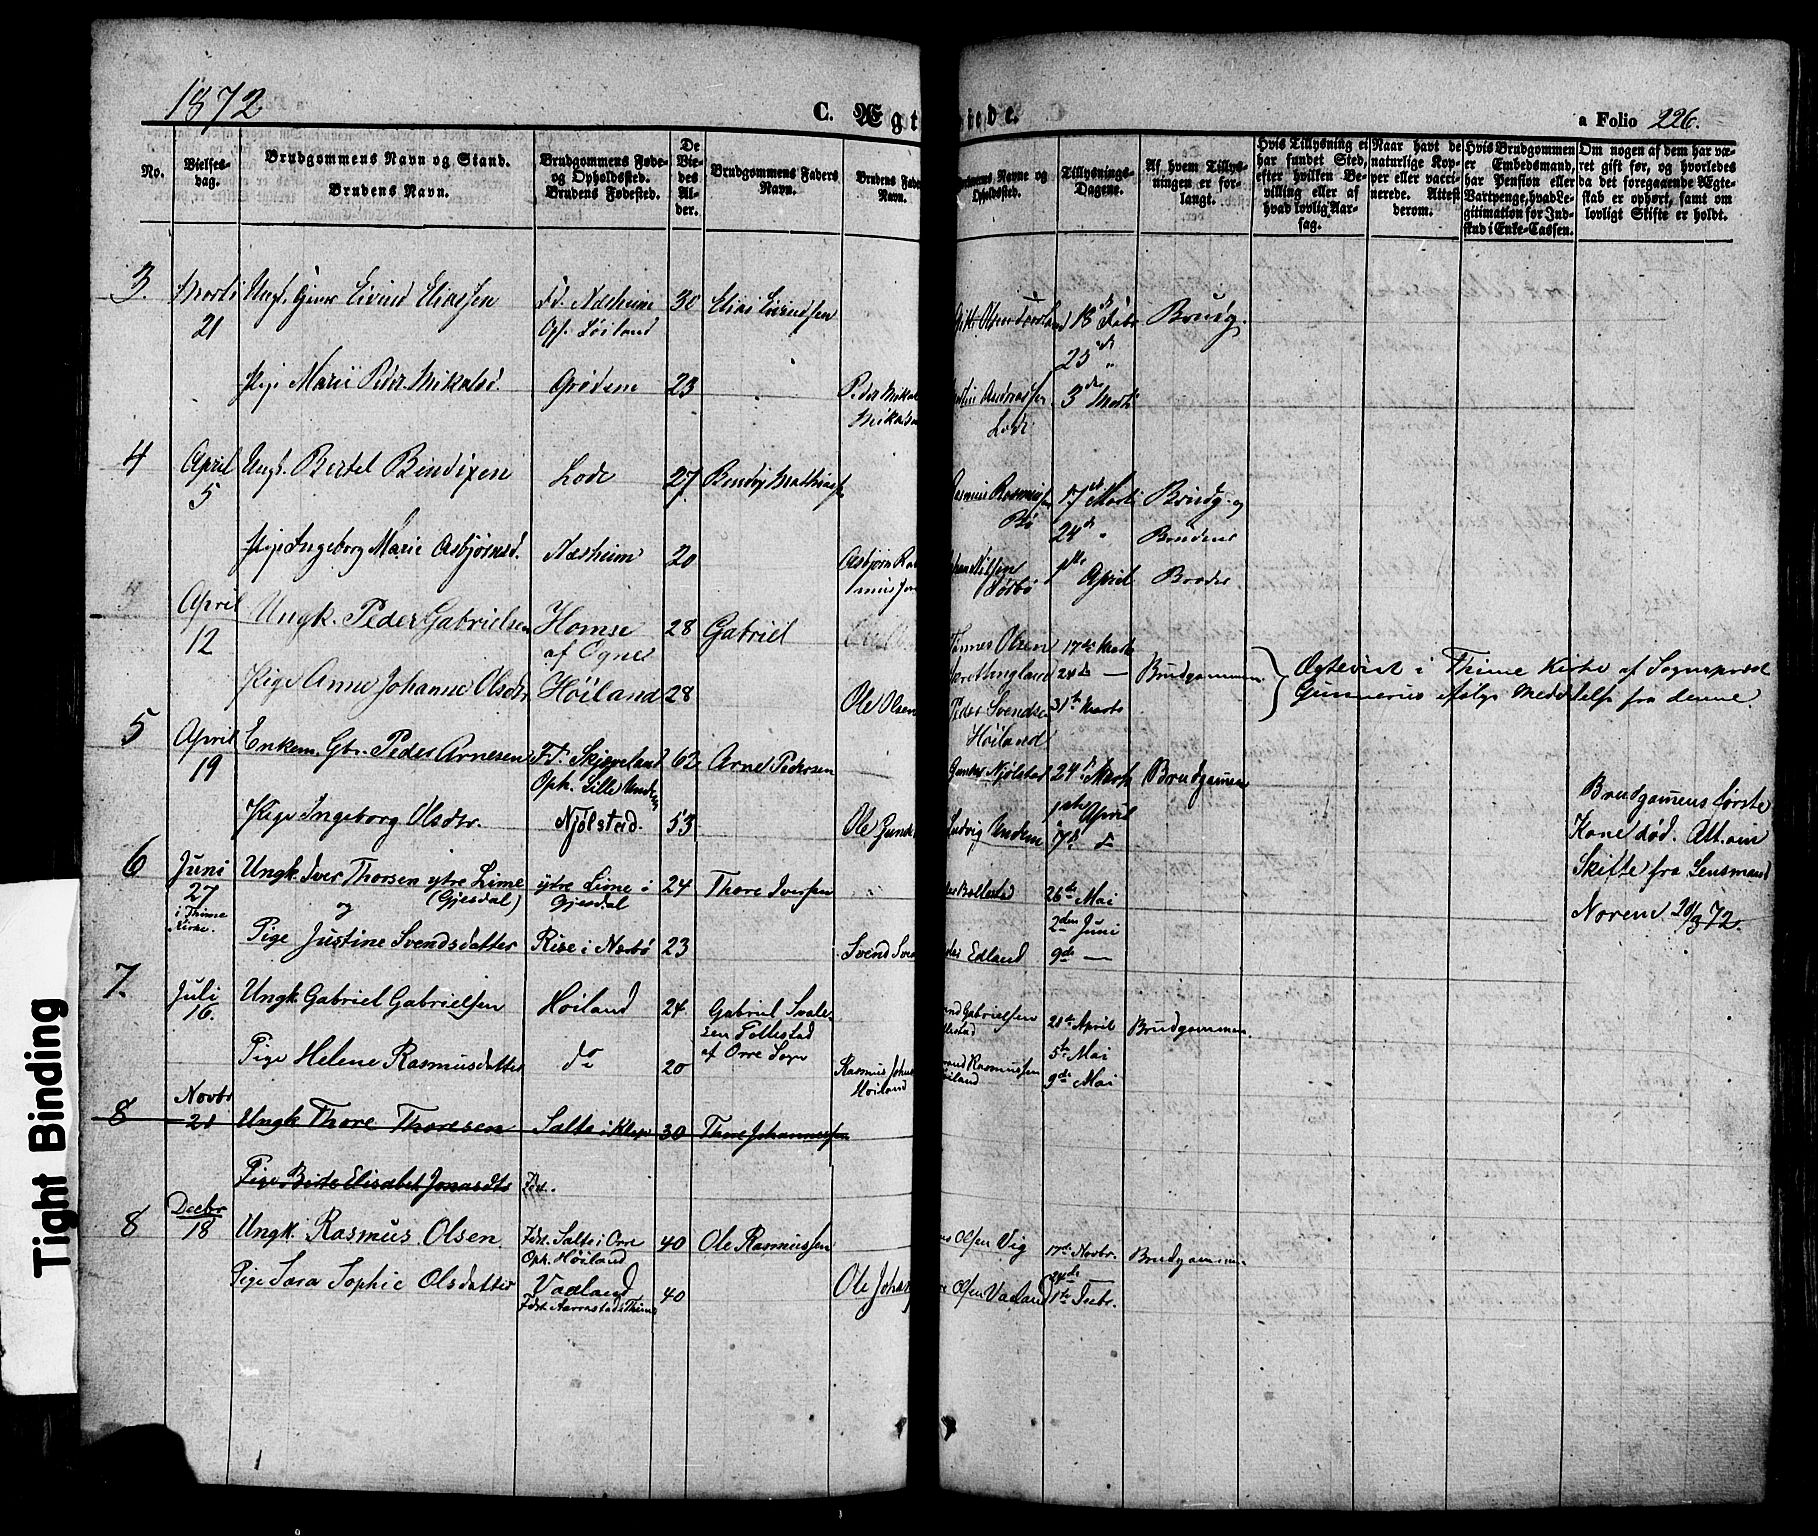 1872
C. Ægt
iede.
a Folio 226.
No.
Vielses-
dag.
Brudgommens Navn og Stand.
Brudens Navn.
Brudgommens Føde-
og Opholdssted.
Brudens Fødested.
De
Vie-
des
Al-
der.
Brudgommens Faders
Navn.
Brudens Fade
Navn.
rernes Navne og
Opholdssted.
Tillysnings-
Dagene.
Af hvem Tillys-
ningen er for-
langt.
Hvis Tillysning ei
har fundet Sted,
efter hvilken Be-
villing eller af
hvad lovlig Aar-
sag.
Naar havt de
naturlige Kop-
per eller vacci-
nerede. Attest
derom.
Hvis Brudgommen
er Embedsmand,
har Pension eller
Vartpenge, hvad Le-
gitimation for Ind-
skud i Enke-Cassen.
Om nogen af dem har væ-
ret gift før, og hvorledes
da det foregaaende Ægte-
skab er ophørt, samt om
lovligt Skifte er holdt.
3. Marts 21 Ungk. Eivind Eliassen
Fd. Næsheim
Op. Høiland
30 Elias Eivindsen
18de Febr
23de "
3de Marts
Brudg.
Pige Marie Peder Mikalsd.
Grødem
23
Peder Mikal
Mikalsen
Andreassen
Lode
4 April 5 Ungk. Bertel Bendixen
Lode
27 Bendix Mathias
Rasmus Rasmussen
Bø
17de Marts
24de "
1ste April
Brudg. og
Brudens
Pige Ingeborg Marie Asbjørnsd.
Næsheim
20
Asbjørn Ras
mussen
Nilsen
April 12 Ungk. Peder Gabrielsen
Homse
af Ogne
28 Gabriel
Tønnes Olsen
17de Marts
24de —
31te Marts
Brudgommen
Ægteviet i Thime Kirke af Sognepræst
Gunnerus ifølge Meddelelse fra denne
Pige Anne Johanne Olsdtr
Høiland
28
Ole Olsen
Peder Svendsen
Høiland
5 April 19 Enkem. Gbr. Peder Arnesen
Fd. Skipveland
Oph. Lille Undem
62 Arne Pedersen
Gunder Njølstad
24de Marts
1ste April
7de d
Brudgommen
Brudgommens første
Kone død. Att. om
Skifte fra Lensmand
Norem 20/3 72.
Pige Ingeborg Olsdtr.
Njølstad.
53
Ole Gund
Ludvig Undem
6 Juni 27 i Thime Kirke.
Ungk. Iver Thorsen ytre Lime
(Gjesdal)
og
ytre Lime i
Gjesdal
24 Thore Iversen
Bollestad
26de Mai
2den Juni
9de —
Pige Justine Svendsdatter
Rise i Nærbø
23
Svend Sve
Edland
7. Juli 16. Ungk. Gabriel Gabrielsen
Høiland
24
Gabriel Svale-
sen Tollestad
af Orre Sogn
Gabrielsen
21de April
5te Mai
9de Mai
Brudgommen
Pige Helene Rasmusdatter
do
20
Rasmus Johns
Høiland
Rasmussen
Høiland
8 Novbr 21 Ungk Thore Thoresen
Salte i Klep
30 Thore Johannessen
Pige Birte Elisabet Jonasdtr
Fdt.
8 Decbr 18 Ungk. Rasmus Olsen.
Fdt. Salte i Orre
Oph. Høiland
40 Ole Rasmussen
Olsen Vig
17de Novbr.
24de
1te Decbr.
Brudgommen
Pige Sara Sophie Olsdatter
Vadland
Fdt. Aarrestad i Thime
40
Ole Johan
Olsen Vadland
Tight Binding